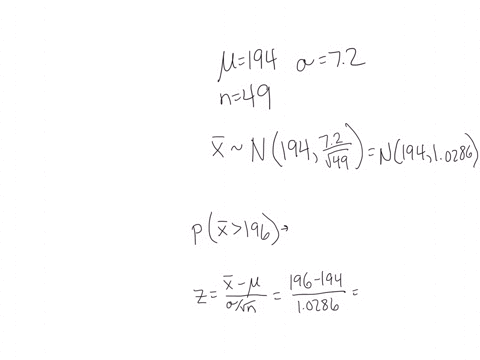 μ=194 σ=7.2
n=49
x̄ ~ N(194, 7.2/√49) = N(194, 1.0286)
P(x̄>196)→
z = (x̄-μ)/(σ/√n) = (196-194)/1.0286 =